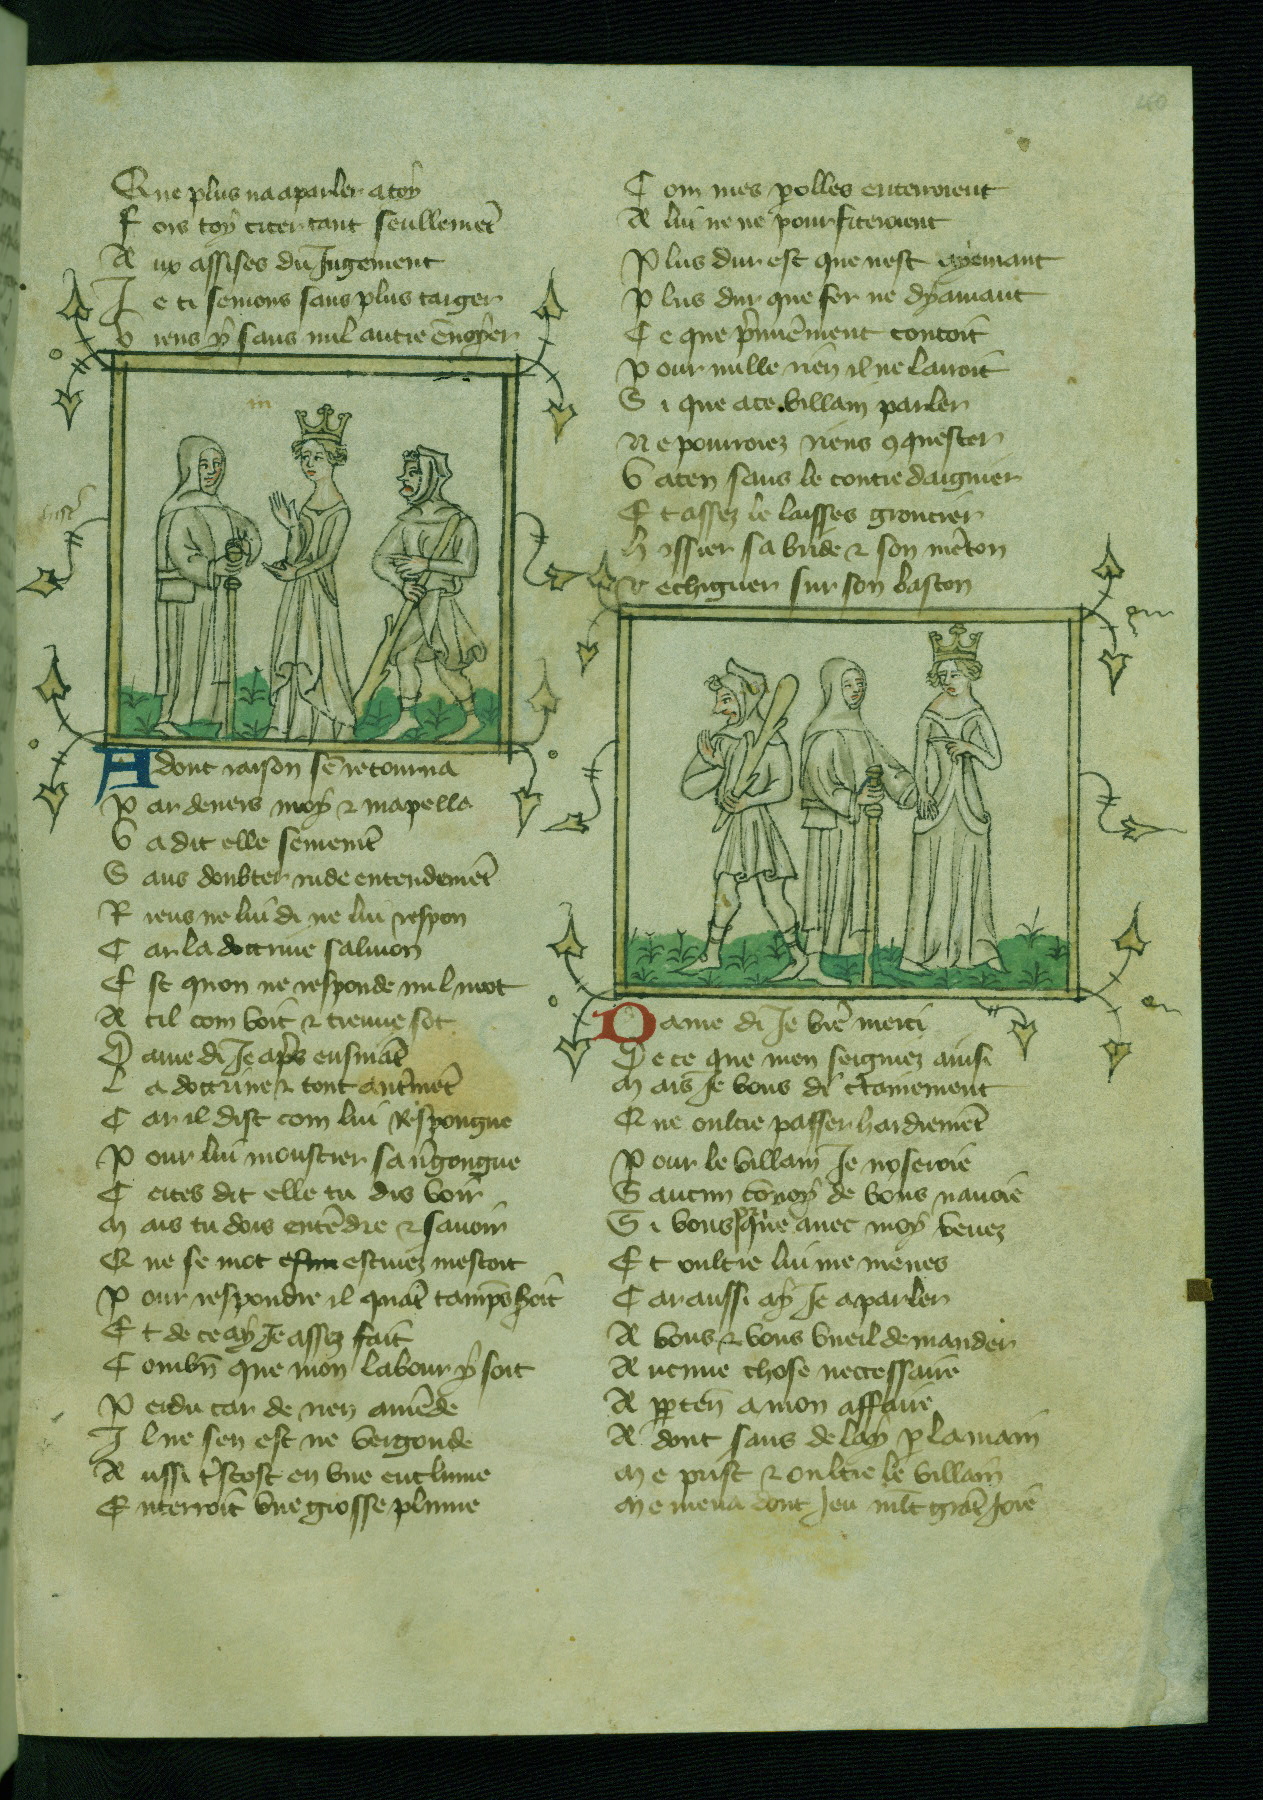 Que plus na a parler a toy
Fors toy citer tant seullemet̄
Aux assises du Jugement
Je ti semons sans plus targer
Viens y sans nul autre ēnoyer
Adont raison sē retourna
Par deuers moy & mapella
Va dit elle seuremēt
Sans doubter rude entendemēt
Riens ne lui di ne lui respon
Car la doctrine salmon
Est quon ne responde nul mot
A cil com voit & treuue sot
Dame di Je ap̄s ensuiāt
La doctrine & tout aut̄mēt
Car il dist com lui Respongne
Pour lui moustrer sa v̄gongne
Certes dit elle tu dis voir
Mais tu dois entēdre & sauoir
Que se mot estriuez mestoit
Pour respondre il quāt tamps soit
Et de ce ay Je assez fait
Combn̄ que mon labour y soit
Perdu car de rien amēde
Il ne sen est ne vergonde
Aussi t̄stost en vne enclume
Enterroit vne grosse plume
Com mes polles enterroient
A lui ne ne pourfiteroient
Plus dur est que nest ayemant
Plus dur que fer ne dyamant
Ce que p̄miēment contoit
Pour nulle riēn il ne lairoit
Si que a ce villain parler
Ne pourroiez riens 9quester
Va ten sans le contredaignier
Et assez le laisses groucier
hissier sa bride & son mēton
Rechigner sur son baston
Dame di Je vr̄e merci
De ce que men seigniez ainsi
Mais Je vous di c̄tainement
Que oultre passer hardiemēt
Pour le villain Je noseroie
Saucun cōuoy de vous nauoie
Si vous pr̄ que auec moy venez
Et oultre lui me menes
Car aussi ay Je a parler
A vous & vous vueil demander
Aucune chose neccessaire
Appten̄ a mon affaire
Adont sans delay p la main
Me prist & oultre le villain
Me mena dont Jeu ml̄t grāt Joie